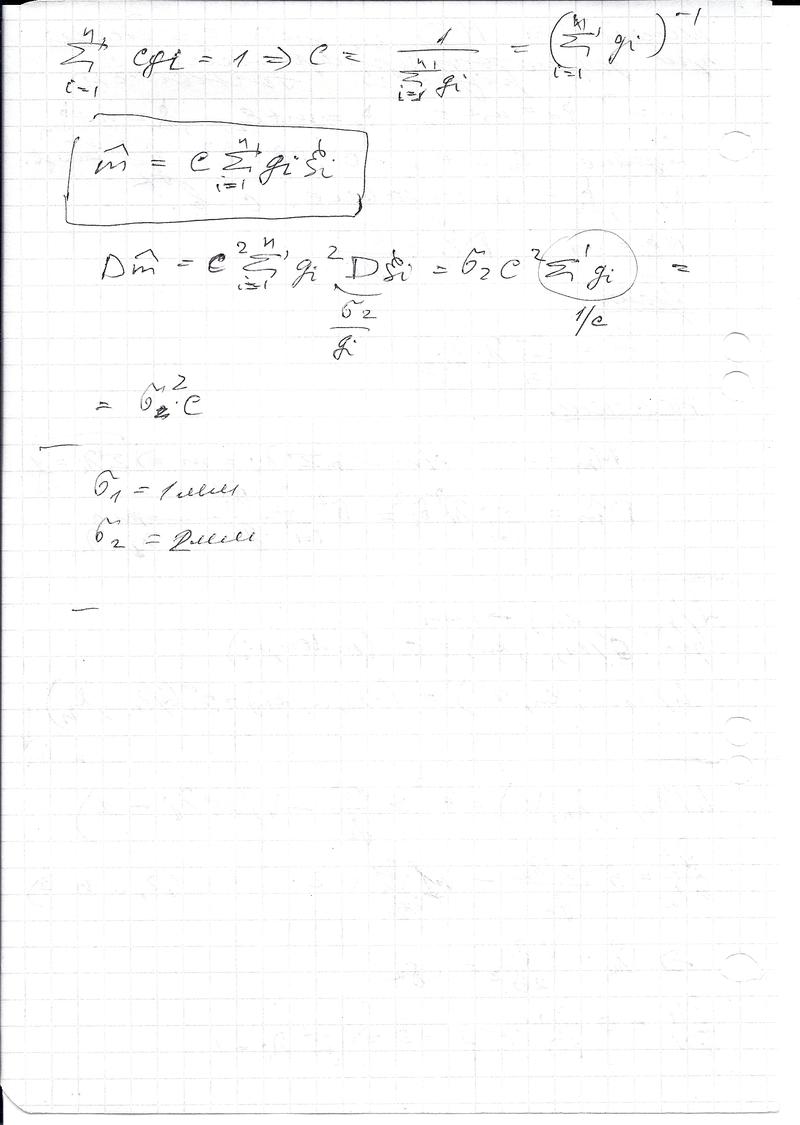 ∑_{i=1}^{n} cg_i = 1 ⇒ c = 1 / ∑_{i=1}^{n} g_i = (∑_{i=1}^{n} g_i)^{-1}
m̂ = c ∑_{i=1}^{n} g_i ξ_i
Dm̂ = c² ∑_{i=1}^{n} g_i² Dξ_i = σ₂ c² ∑ g_i =
σ₂ / g_i
1/c
= σ² c
σ₁ = 1 мм
σ₂ = 2 мм